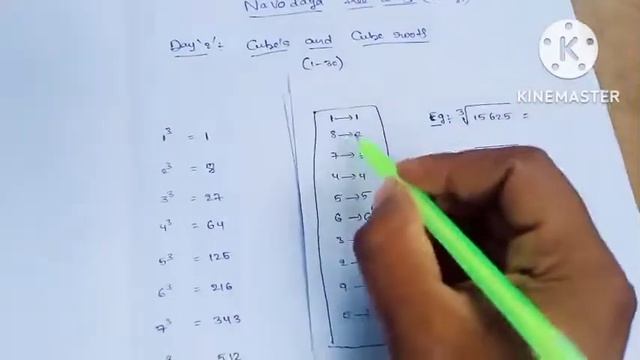 Navodaya
Day '2': Cube's and Cube roots
(1-30)
1³ = 1
2³ = 8
3³ = 27
4³ = 64
5³ = 125
6³ = 216
7³ = 343
512
1→1
8→2
7→3
4→4
5→5
6→6
3→
2→
9→
Eg: ³√15625 =
K
KINEMASTER